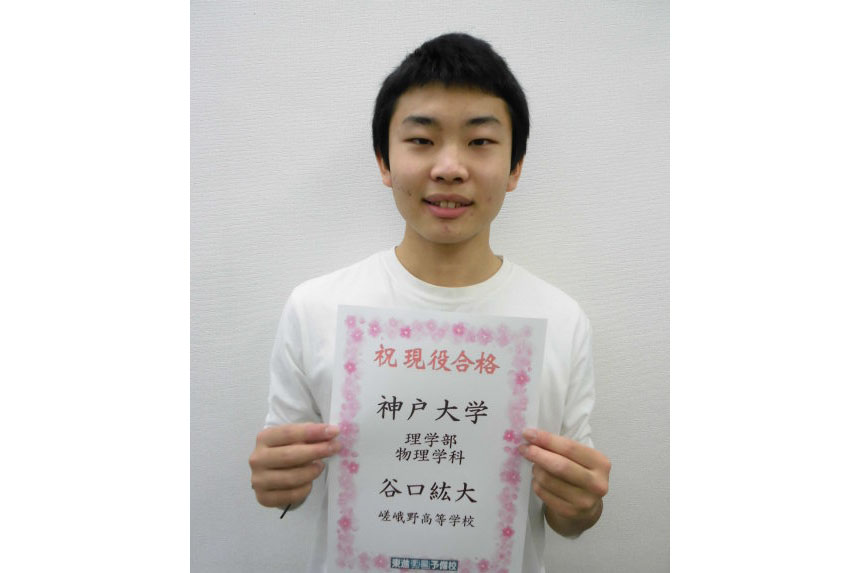 祝現役合格
神戸大学
理学部
物理学科
谷口紘大
嵯峨野高等学校
東進衛星予備校